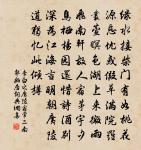 綠水接柴門有如桃花
源忘憂或假草滿院羅
叢萱暝色湖上來微雨
飛南軒故人宿茅宇夕
鳥棲楊園還惜詩酒別
深為江海言明朝廣陵
道獨憶此傾樽
李白之廣陵宿常二南
郭幽居